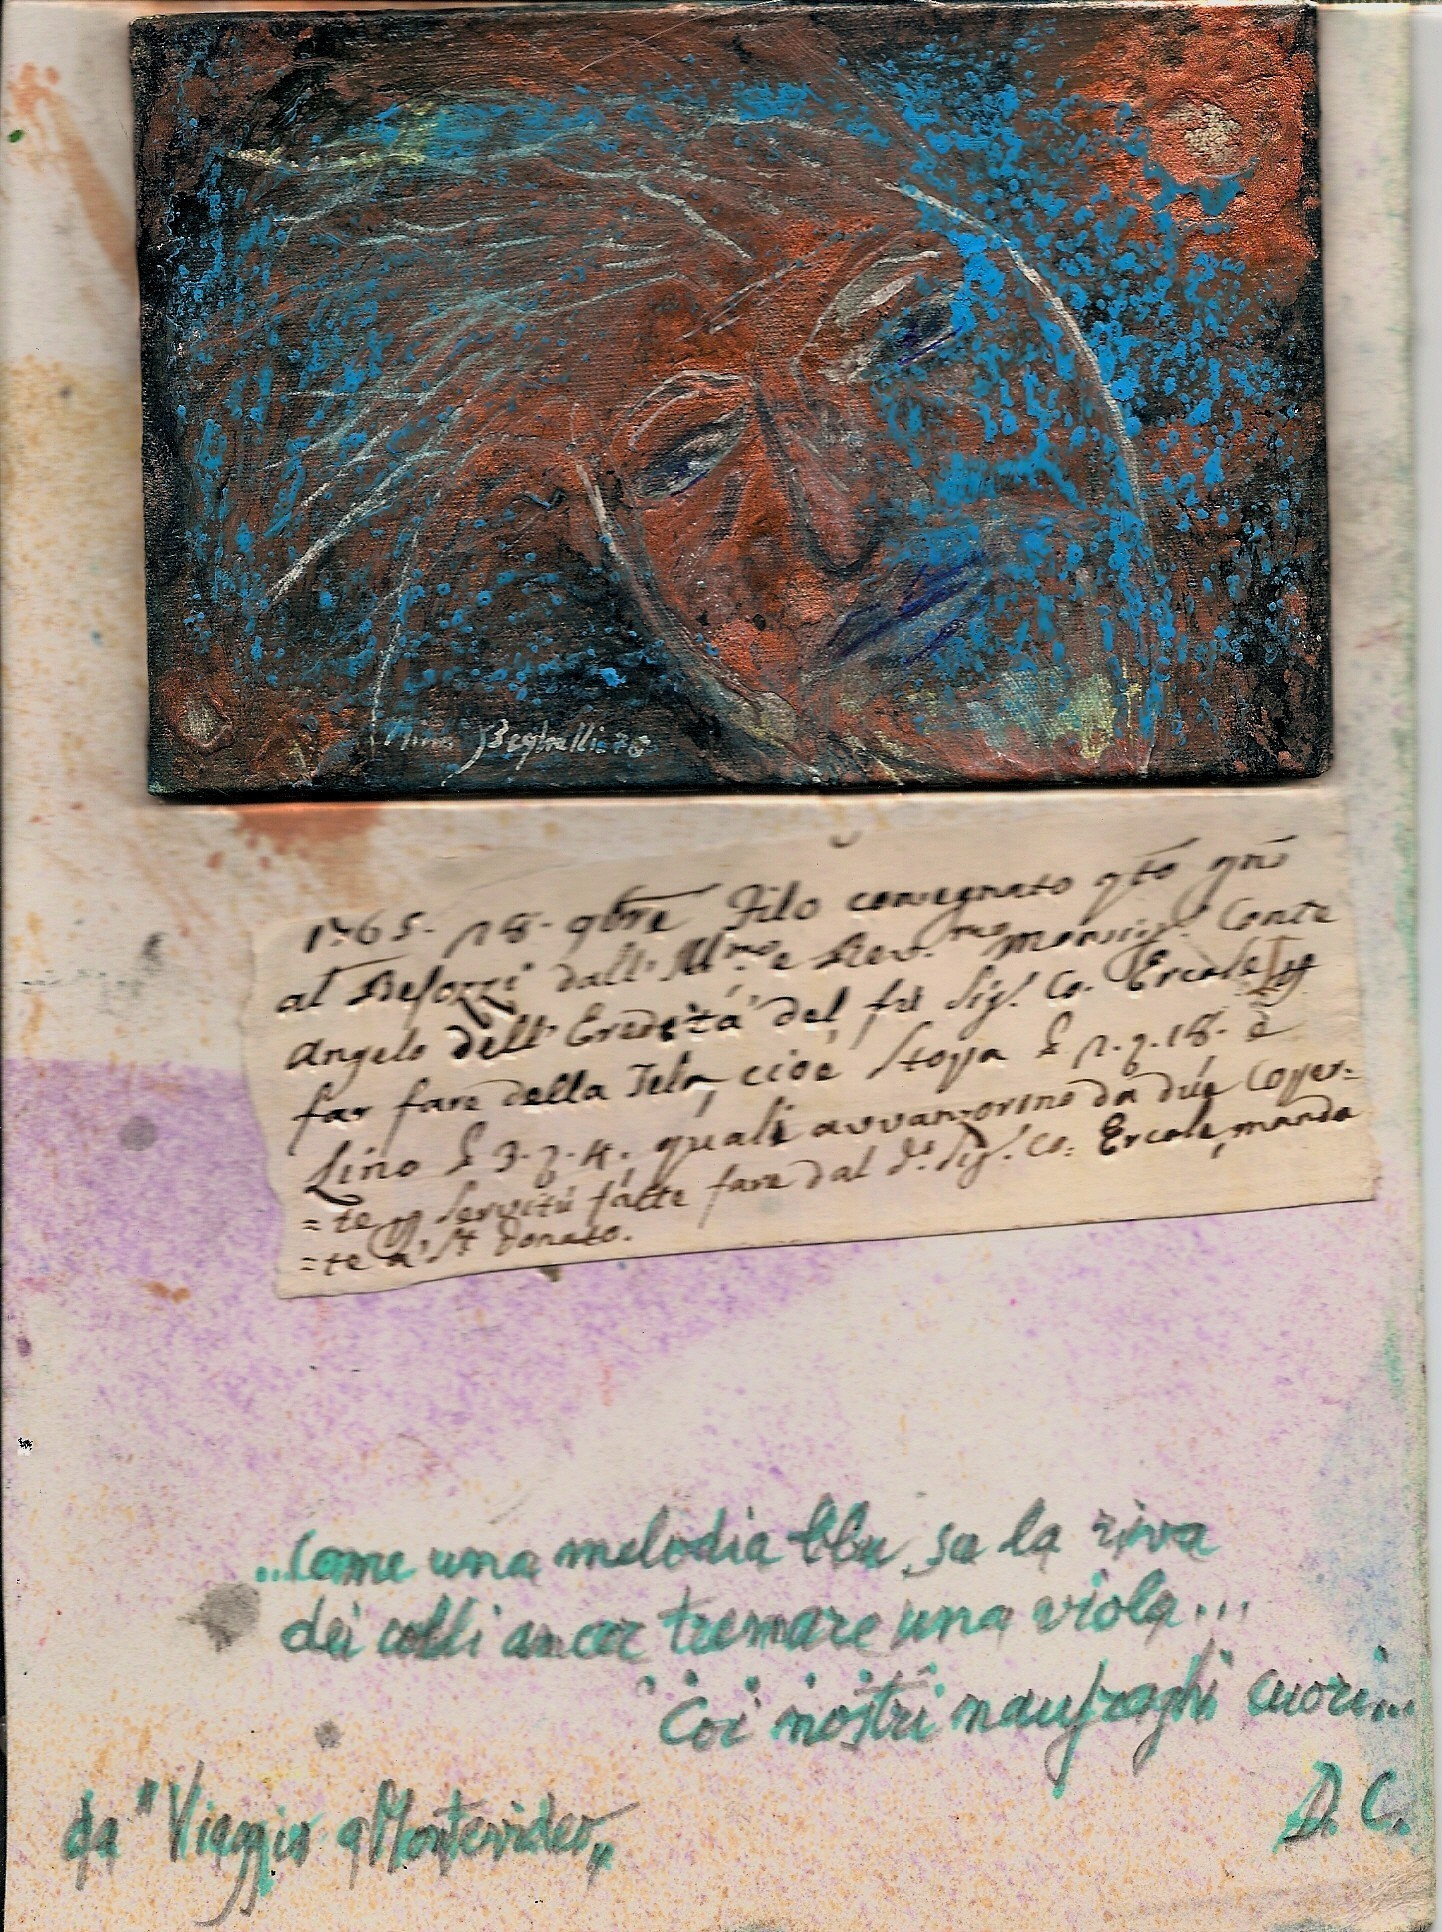 Nino Beghelli 76
1765. 18. 9bre Filo consegnato qto gno
al Besozzi dall' Illmo e Rev.mo Monsig.r Conte
Angelo dell' Eredità del fù Sig.r Co. Ercole
far fare della Tela, cioè Stoppa 18. e
Lino quali avvanzorno da due Copper=
=te Servitù fatte fare dal d.o Sig.r Co: Ercole, manda
=te a S.t Donato.
...come una melodia blu, su la riva
dei colli ancor tremare una viola...
Coi nostri naufraghi cuori...
D. C.
da "Viaggio a Montevideo„